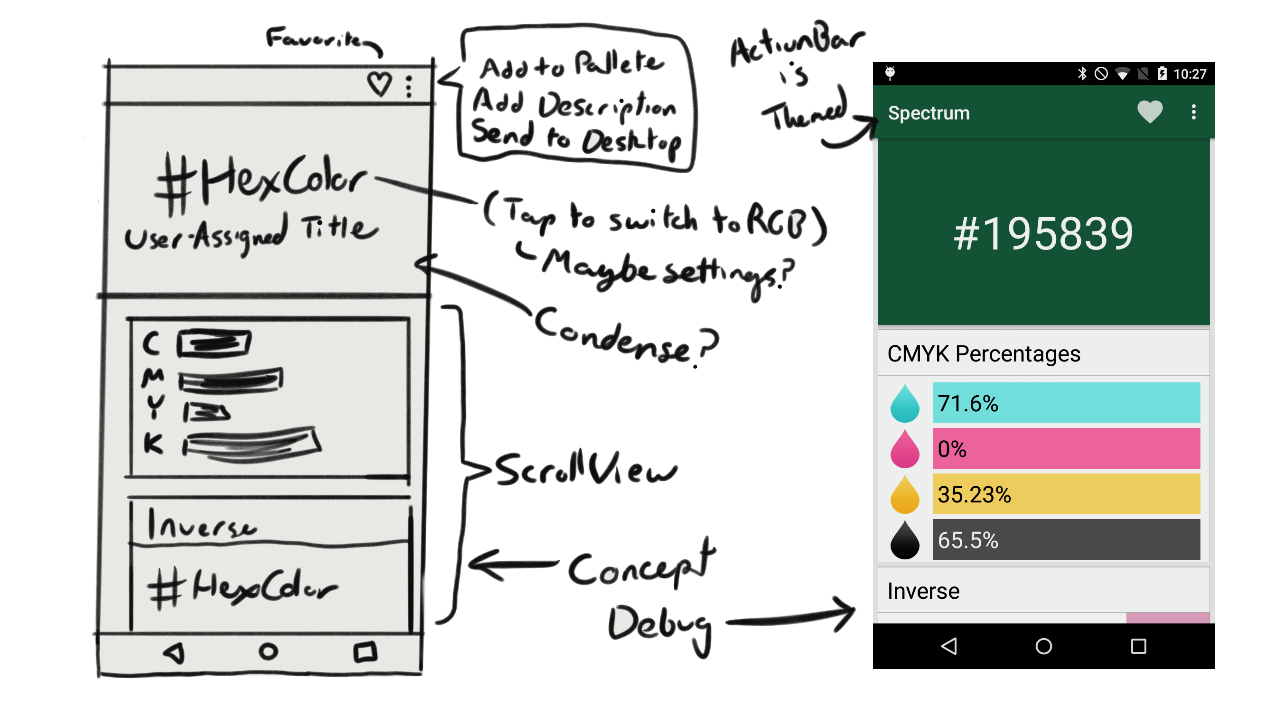 Favorite
Add to Pallete
Add Description
Send to Desktop
#HexColor
User-Assigned Title
(Tap to switch to RGB)
Maybe settings?
Condense?
C
M
Y
K
ScrollView
Inverse
#HexColor
Concept
Debug
ActionBar
is
Themed
10:27
Spectrum
#195839
CMYK Percentages
71.6%
0%
35.23%
65.5%
Inverse